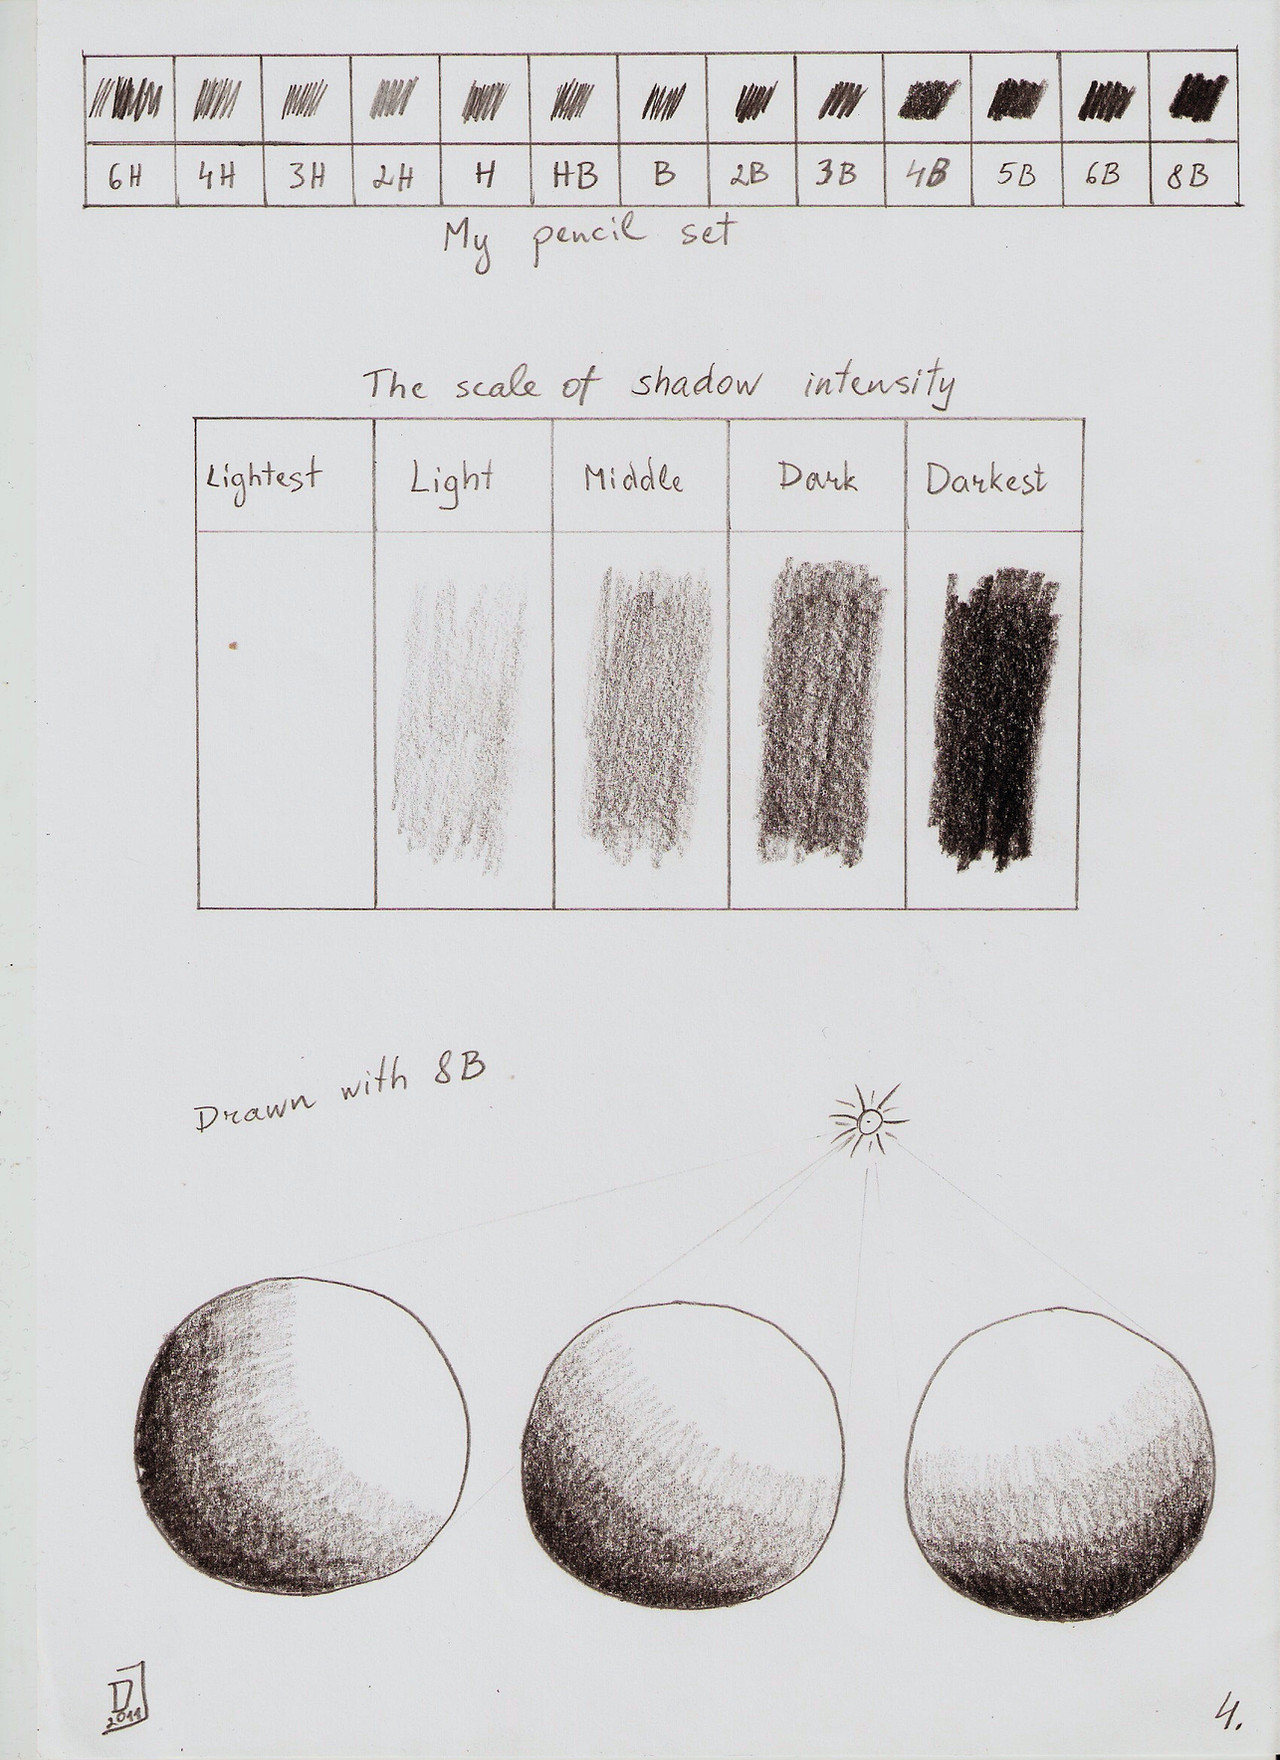 6H 4H 3H 2H H HB B 2B 3B 4B 5B 6B 8B
My pencil set
The scale of shadow intensity
Lightest Light Middle Dark Darkest
Drawn with 8B
D
2011
4.